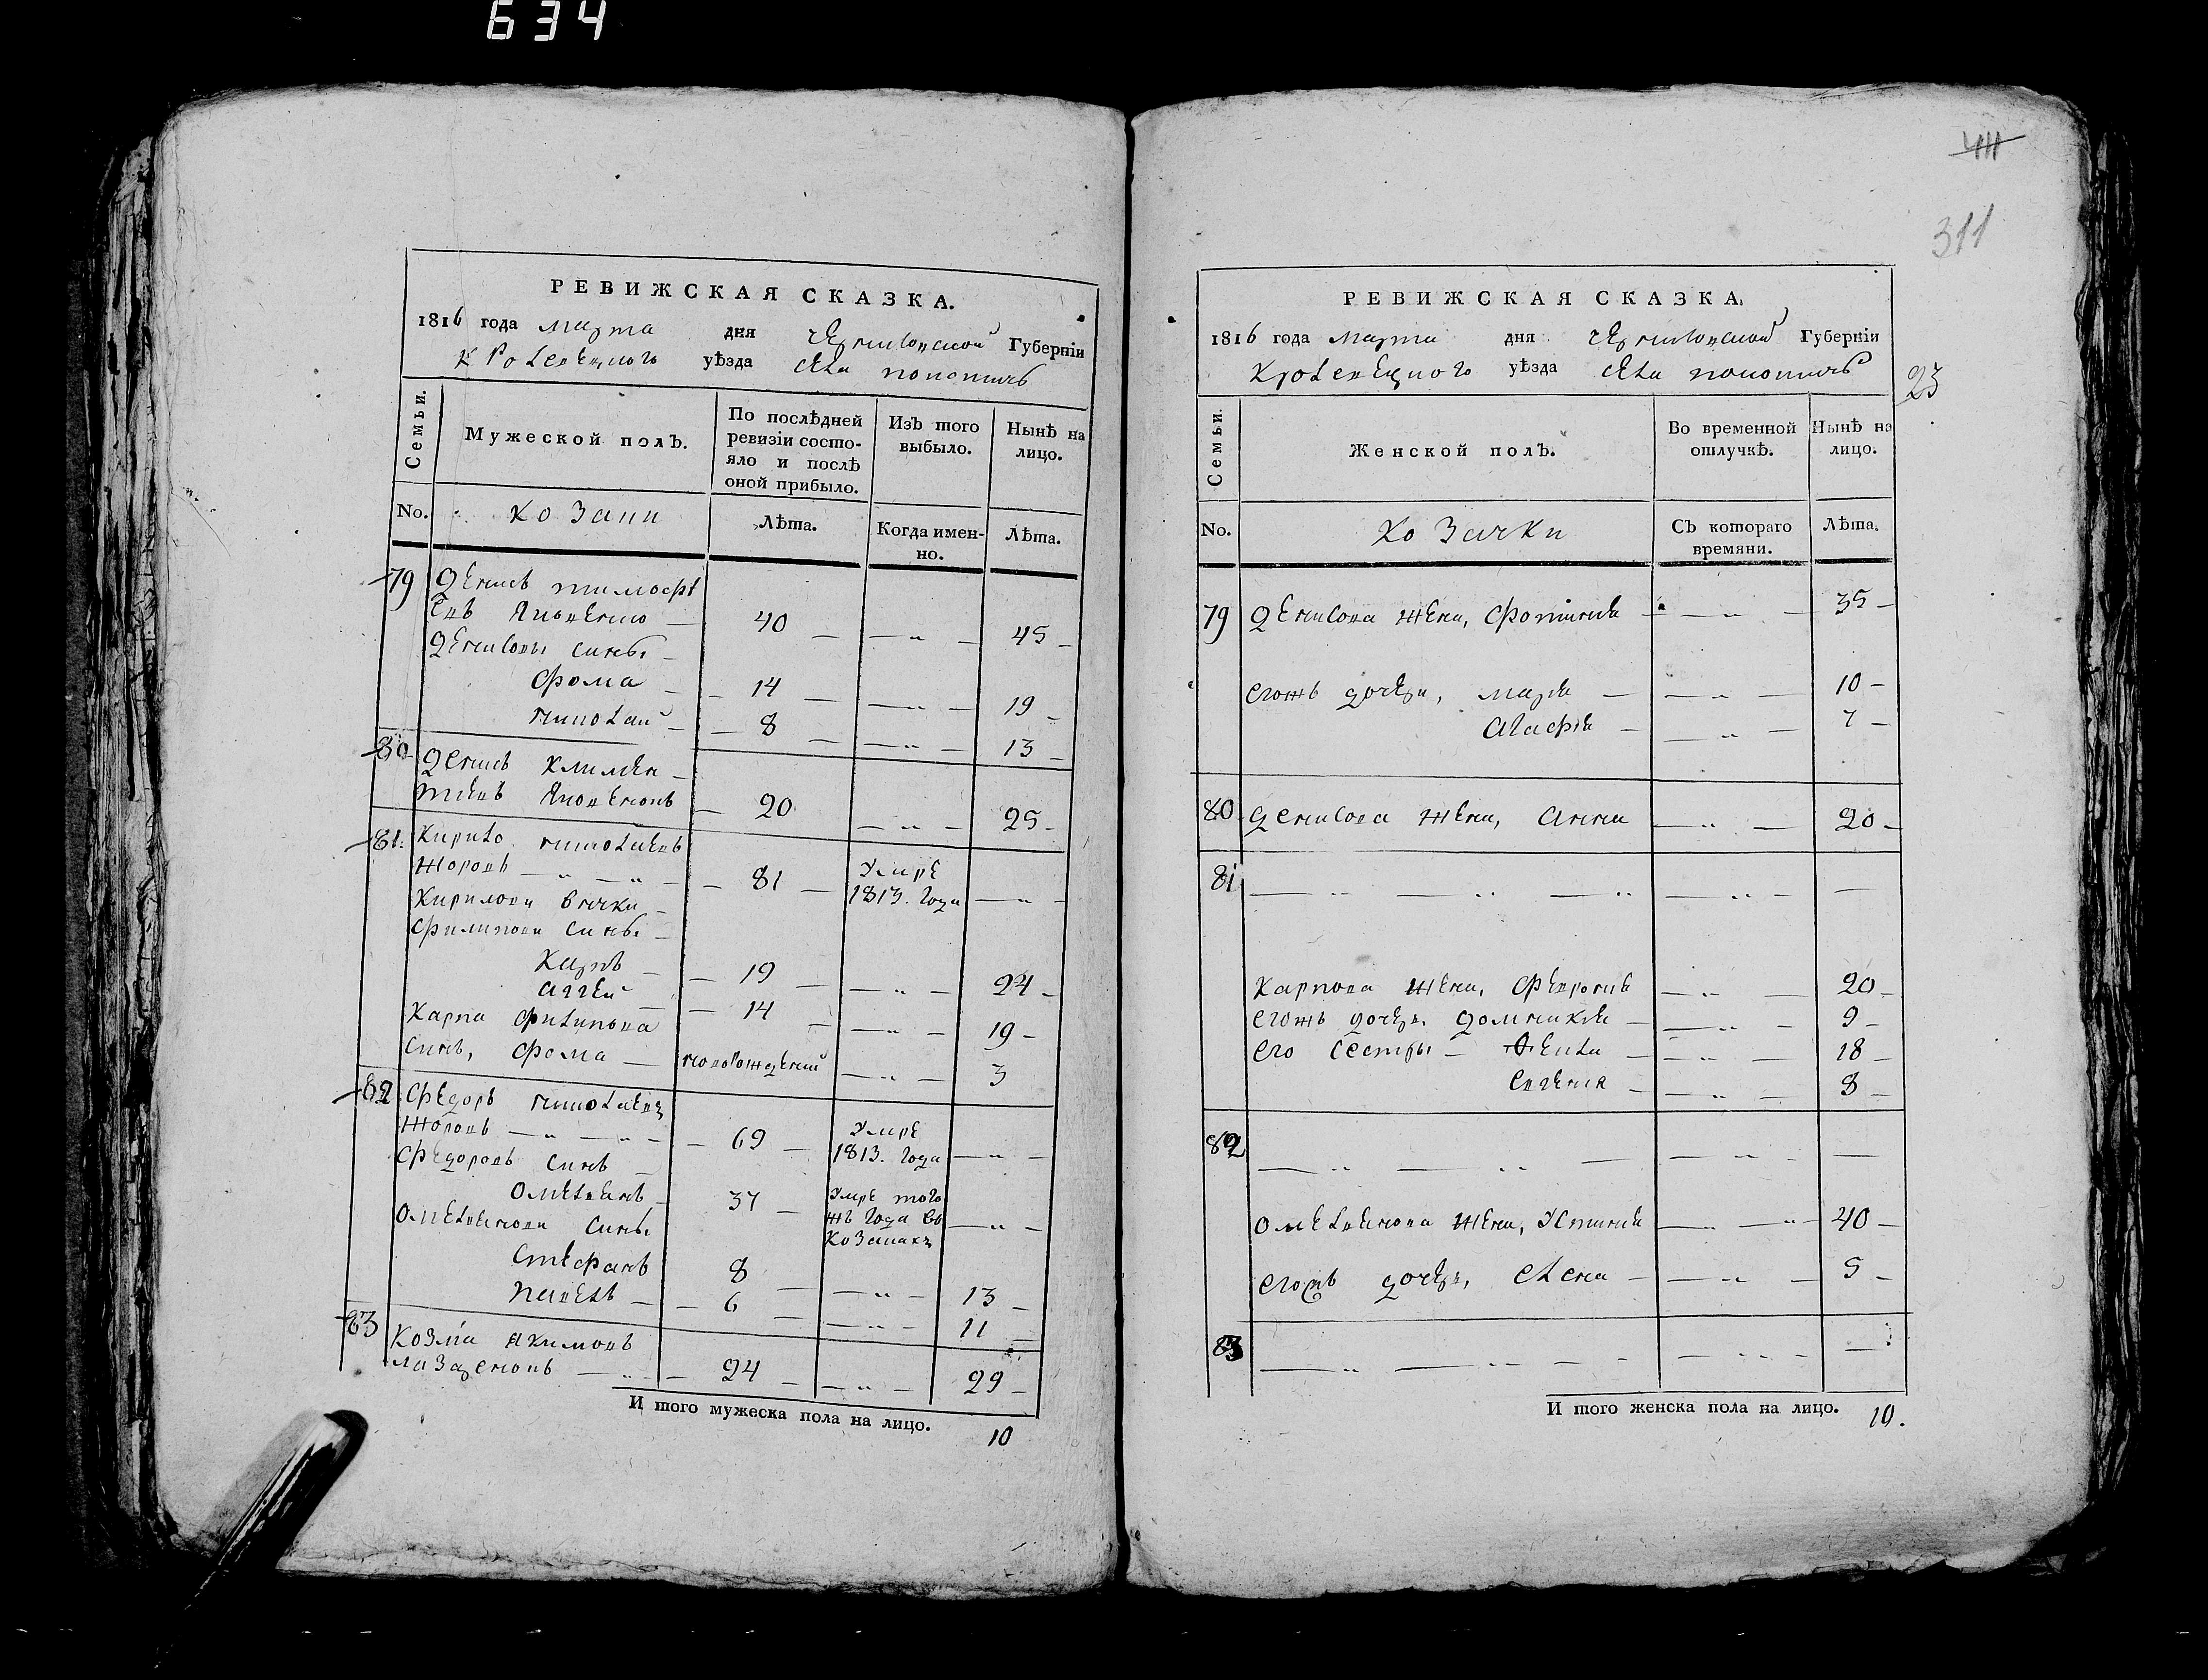 634
РЕВИЖСКАЯ СКАЗКА.
1816 года марта дня черниговской Губерніи
Кролевецкого уѣзда села
Семьи.
Мужеской полъ.
По послѣдней ревизіи состо-
яло и послѣ
оной прибыло.
Изъ того
выбыло.
Нынѣ на
лицо.
No. козаки Лѣта. Когда имен-
но. Лѣта.
79 Денисъ тимофѣ
евъ Яковенко — 40 — — „ — 45 —
Денисовы сины —
фома — — 14 — — „ — 19 —
николай — — 8 — — „ — 13 —
80 Денисъ климен —
тиевъ Яковенокъ — 20 — „ — 25 —
81. Кирило николаевъ
— „ — „ — — 81 — Умре
1813. года — „ —
Кирилови внуки —
филипови сины —
Карпъ — — 19 — — „ — 24 —
Аггей — — 14 — — „ — 19 —
Карпа филипова
синъ, фома — новорождений — „ — 3
82 Федоръ николаевъ
— „ — „ — — 69 — Умре
1813. года — „ —
Федоровъ синъ —
Омелянъ — 37 — Умре того
жъ года во
козаках — „ —
Омелянови сины
Стефанъ 8 — — „ — 13 —
Павелъ — — 6 — — „ — 11 —
83 Козма Якимовъ
Лазаренокъ — „ — — 24 — — „ — 29 —
И того мужеска пола на лицо. 10
411
311
РЕВИЖСКАЯ СКАЗКА.
1816 года марта дня черниговской Губерніи
Кролевецкого уѣзда села
23
Семьи.
Женской полъ.
Во временной
отлучкѣ.
Нынѣ на
лицо.
No. козачки Съ котораго
времяни. Лѣта.
79 Денисова жена, Фотиния — — „ — 35 —
егожъ дочери, мария — — „ — 10 —
Агафия — — „ — 7 —
80. Денисова жена, Анна — „ — 20 —
81 — — „ — „ — „ — —
Карпова жена, Феврония — „ — 20 —
егожъ дочерь домникия — — „ — 9 —
его сестры — Фекла — — „ — 18 —
Евгения — — „ — 8 —
82 — „ — „ — — „ — —
Омелянова жена, Устиния — „ — 40 —
егожъ дочерь, елена — — „ — 5 —
83 — „ — „ — — — „ — —
И того женска пола на лицо. 10.